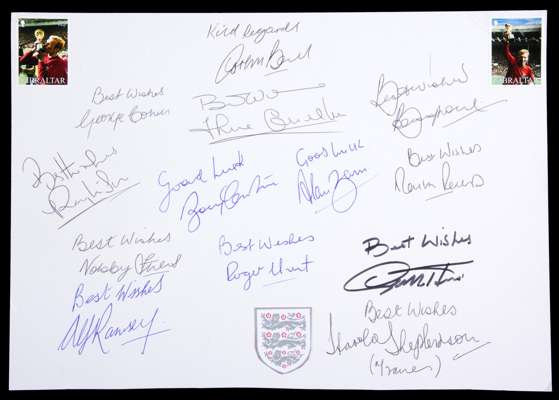 GIBRALTAR
GIBRALTAR
Kind Regards
Gordon Banks
Best Wishes
George Cohen
Best Wishes
Best Wishes
Best Wishes
Ray Wilson
Good Luck
Good Luck
Alan
Best Wishes
Martin Peters
Best Wishes
Nobby Stiles
Best Wishes
Roger Hunt
Best Wishes
Best Wishes
Alf Ramsey
Best Wishes
Harold Shepherdson
(Trainer)